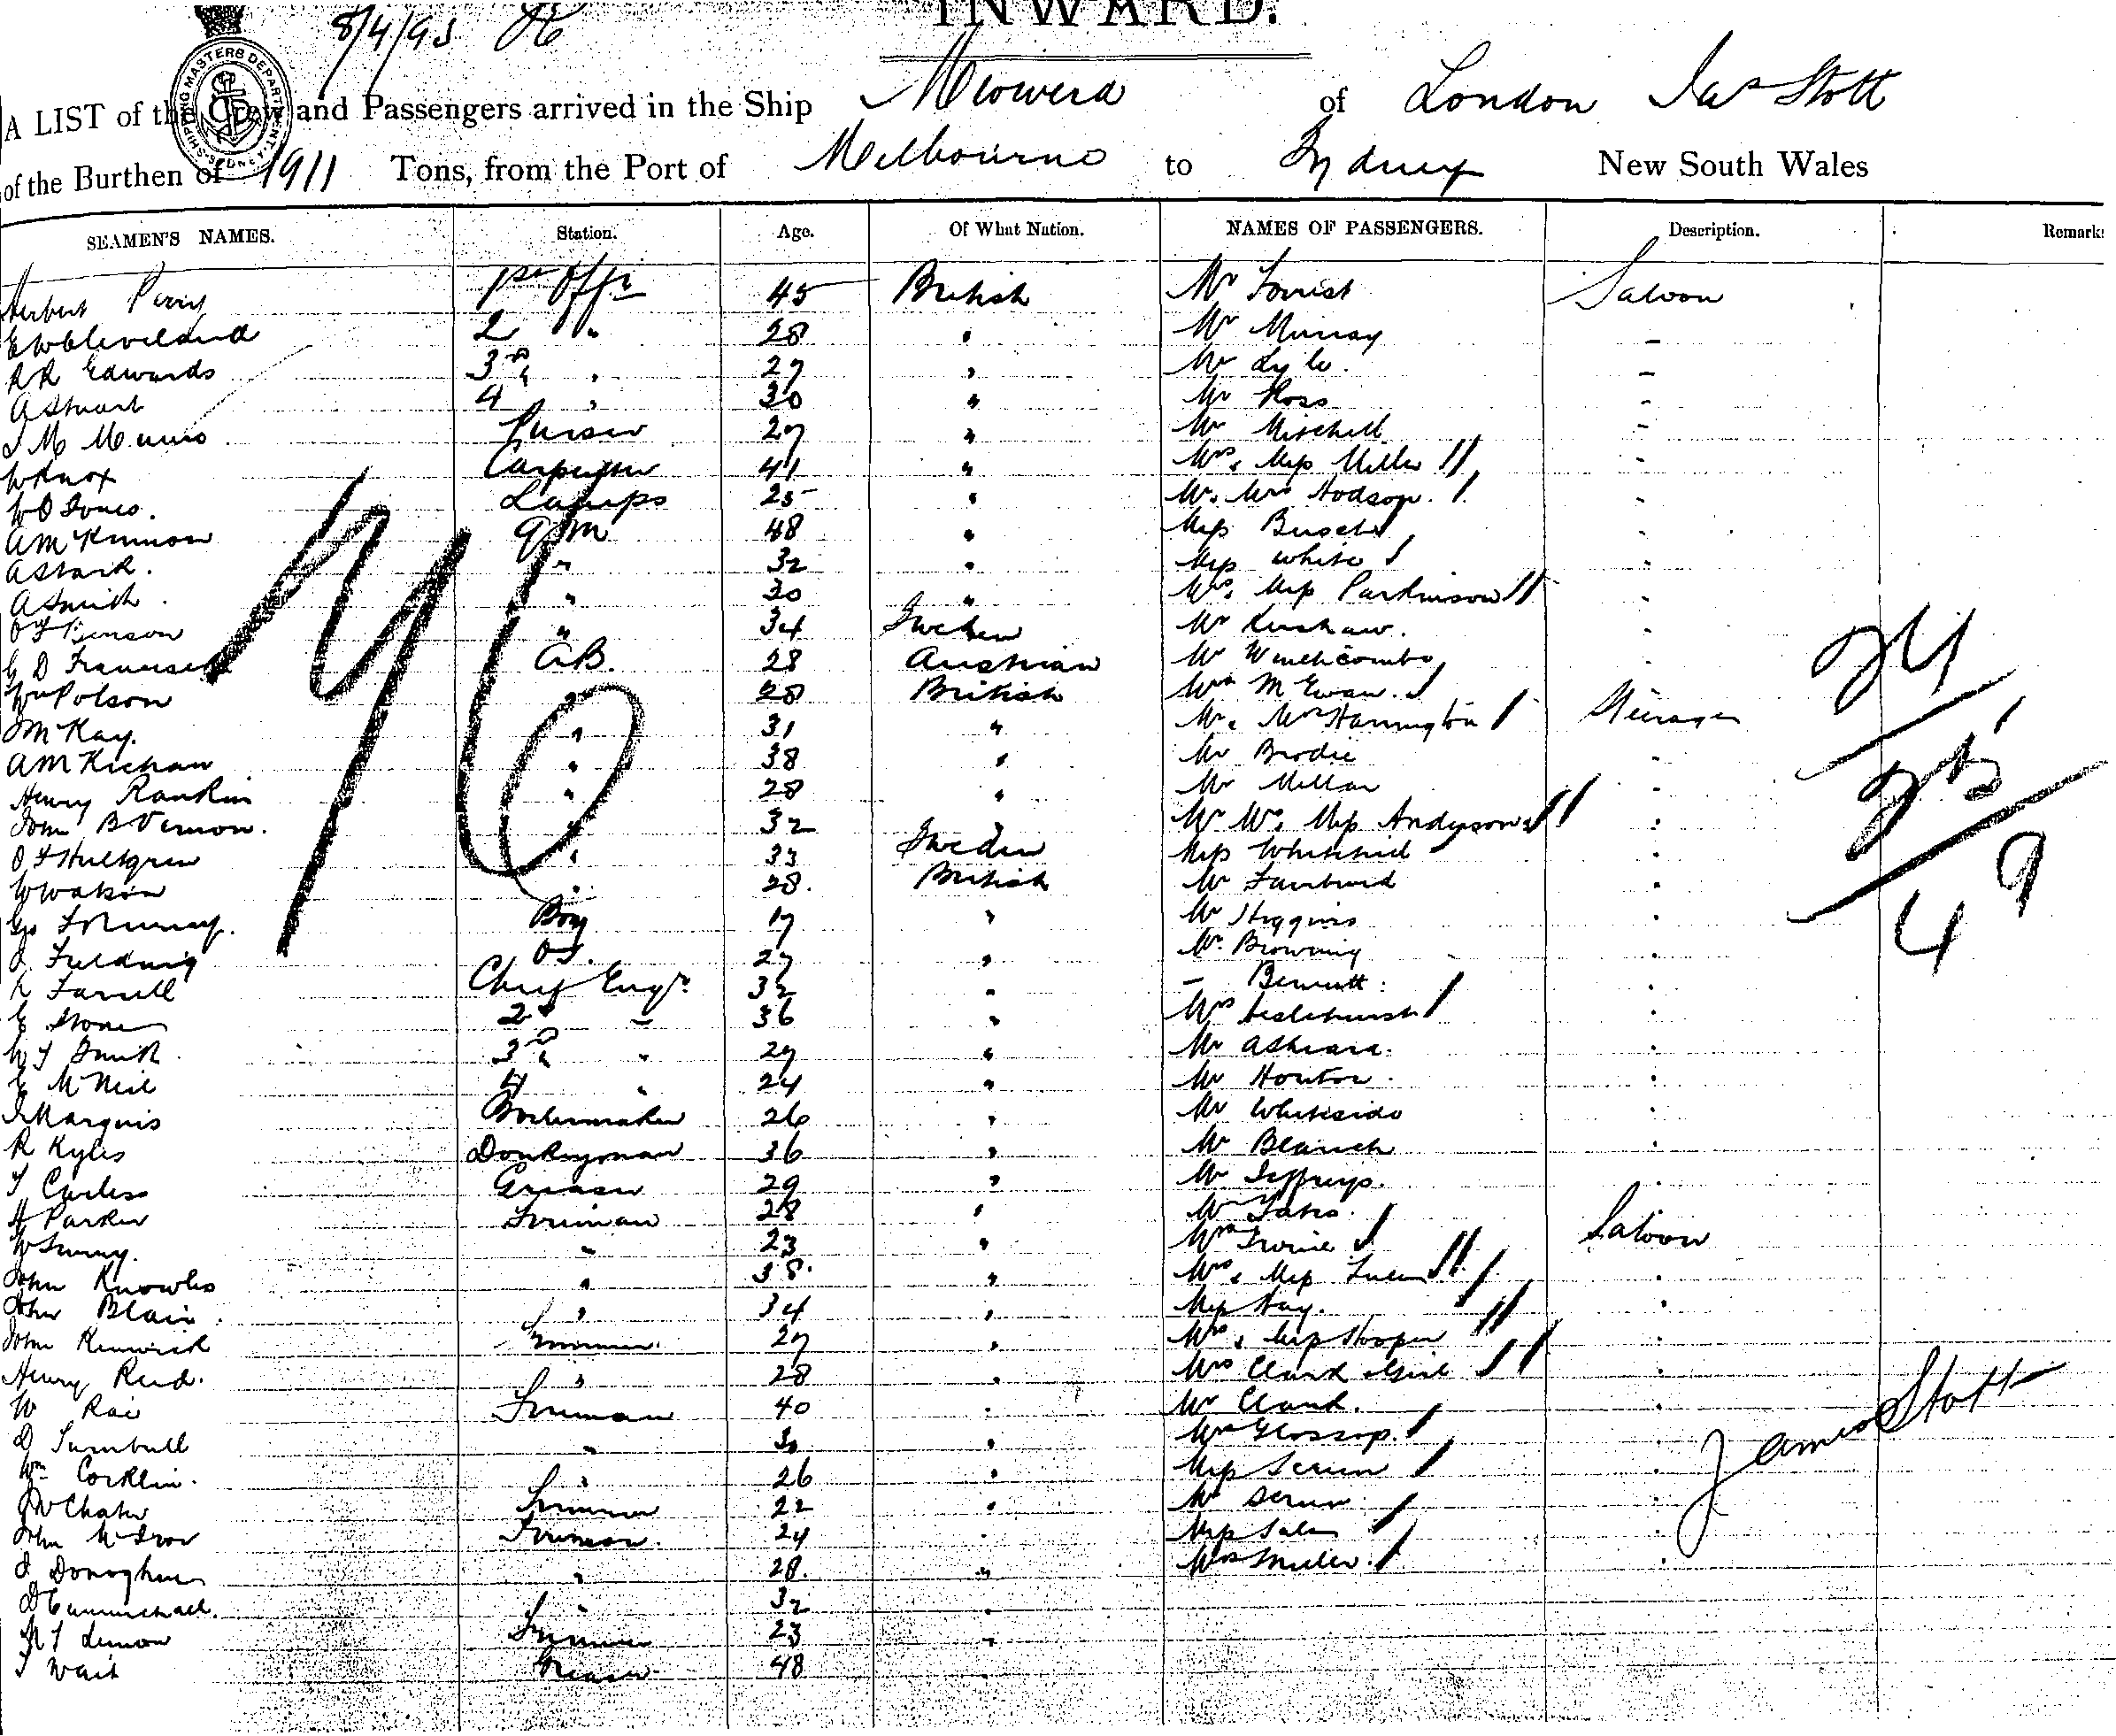 INWARD.
8/4/93
SHIPPING MASTERS DEPARTMENT SYDNEY
A LIST of the Crew and Passengers arrived in the Ship Miowera of London Jas Stott
of the Burthen of 1911 Tons, from the Port of Melbourne to Sydney New South Wales
SEAMEN'S NAMES. Station. Age. Of What Nation. NAMES OF PASSENGERS. Description. Remarks
Herbert Perry 1st Offr 45 British Mr Forrest Saloon
E W Cleveland 2 " 28 " Mr Murray "
R R Edwards 3rd " 27 " Mr Lyle "
A Stuart 4 " 30 " Mr Ross "
J M Munro Purser 27 " Mr Mitchell "
W Knox Carpenter 41 " Mrs & Miss Miller "
W O Jones Lamps 25 " Mr & Mrs Hodson "
A McKinnon Q M 48 " Miss "
A Stark " 32 " Miss White "
A Smith " 30 " Mrs & Miss Parkinson "
O F Benson " 34 Sweden Mr Kershaw "
G D A.B. 28 Austrian Mr Winchcombe "
Wm Polson " 28 British Mrs McEwan "
J McKay " 31 " Mr & Mrs Harrington Steerage
A McKichan " 38 " Mr Brodie "
Henry Rankin " 28 " Mr Millar "
John B Vernon " 32 " Mr Mrs & Miss Anderson "
O F Hultgren " 33 Sweden Miss Whitehead "
W Watson " 28 British Mr "
Geo F Murray Boy 17 " Mr Higgins "
J Fielding O.S. 27 " Mr Browning "
R Farrell Chief Engr 32 " – Bennett "
E Stone 2nd " 36 " Mrs "
W J Smith 3rd " 27 " Mr "
E McNeil 4 " 24 " Mr "
J Marquis Boilermaker 26 " Mr Whiteside "
R Kyles Donkeyman 36 " Mr Blanch "
T Greaser 29 " Mr Jeffreys "
H Parker Fireman 28 " Mr Yates "
W " 23 " Mrs Irvine Saloon
John Knowles " 38 " Mrs & Miss "
John Blair " 34 " Miss Hay "
John Renwick Trimmer 27 " Mrs & Miss Hooper "
Henry Reid " 28 " Mrs Clark & Girl "
W Rae Fireman 40 " Mr Clark "
D Turnbull " " Mrs Glossop "
Wm Corklin " 26 " Miss Scrum "
J W Chater Trimmer 22 " Mr Scrum "
John McIvor Fireman 24 " Miss "
J Donoghue " 28 " Mrs Miller "
D Carmichael " 32 "
Lemon Trimmer 23 "
T Wait Greaser 48 "
76
24
25
49
James Stott